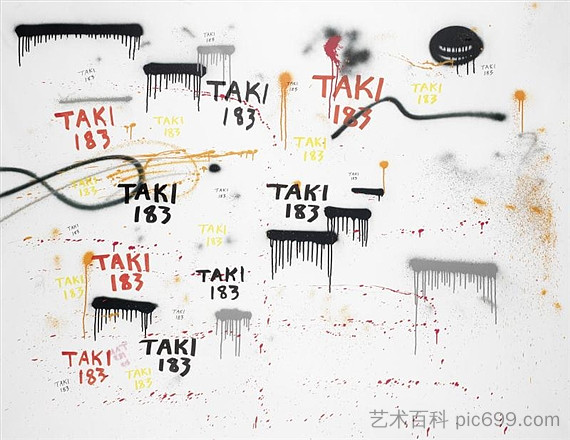 TAKI
183
TAKI
183
TAKI
183
TAKI
183
TAKI
183
TAKI
183
TAKI
183
TAKI
183
TAKI
183
TAKI
183
TAKI
183
TAKI
183
TAKI
183
TAKI
183
TAKI
183
TAKI
183
TAKI
183
TAKI
183
TAKI
183
TAKI
183
TAKI
183
TAKI
183
TAKI
183
艺术百科 pic699.com